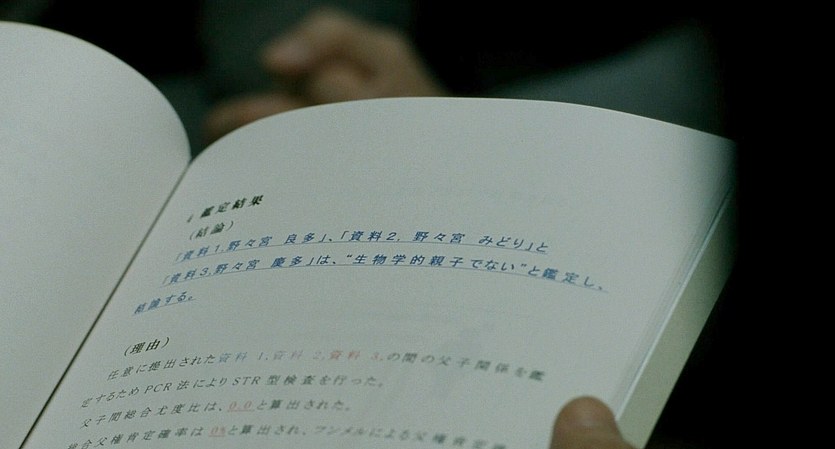 4 鑑定結果
(結論)
「資料1.野々宮 良多」、「資料2. 野々宮 みどり」と
「資料3.野々宮 慶多」は、“生物学的親子でない”と鑑定し、
結論する。
(理由)
任意に提出された資料 1,資料 2,資料 3,の間の父子関係を鑑
定するため PCR 法により STR 型検査を行った。
父子間総合尤度比は、0.0と算出された。
総合父権肯定確率は 0%と算出され、フンメルによる父権肯定